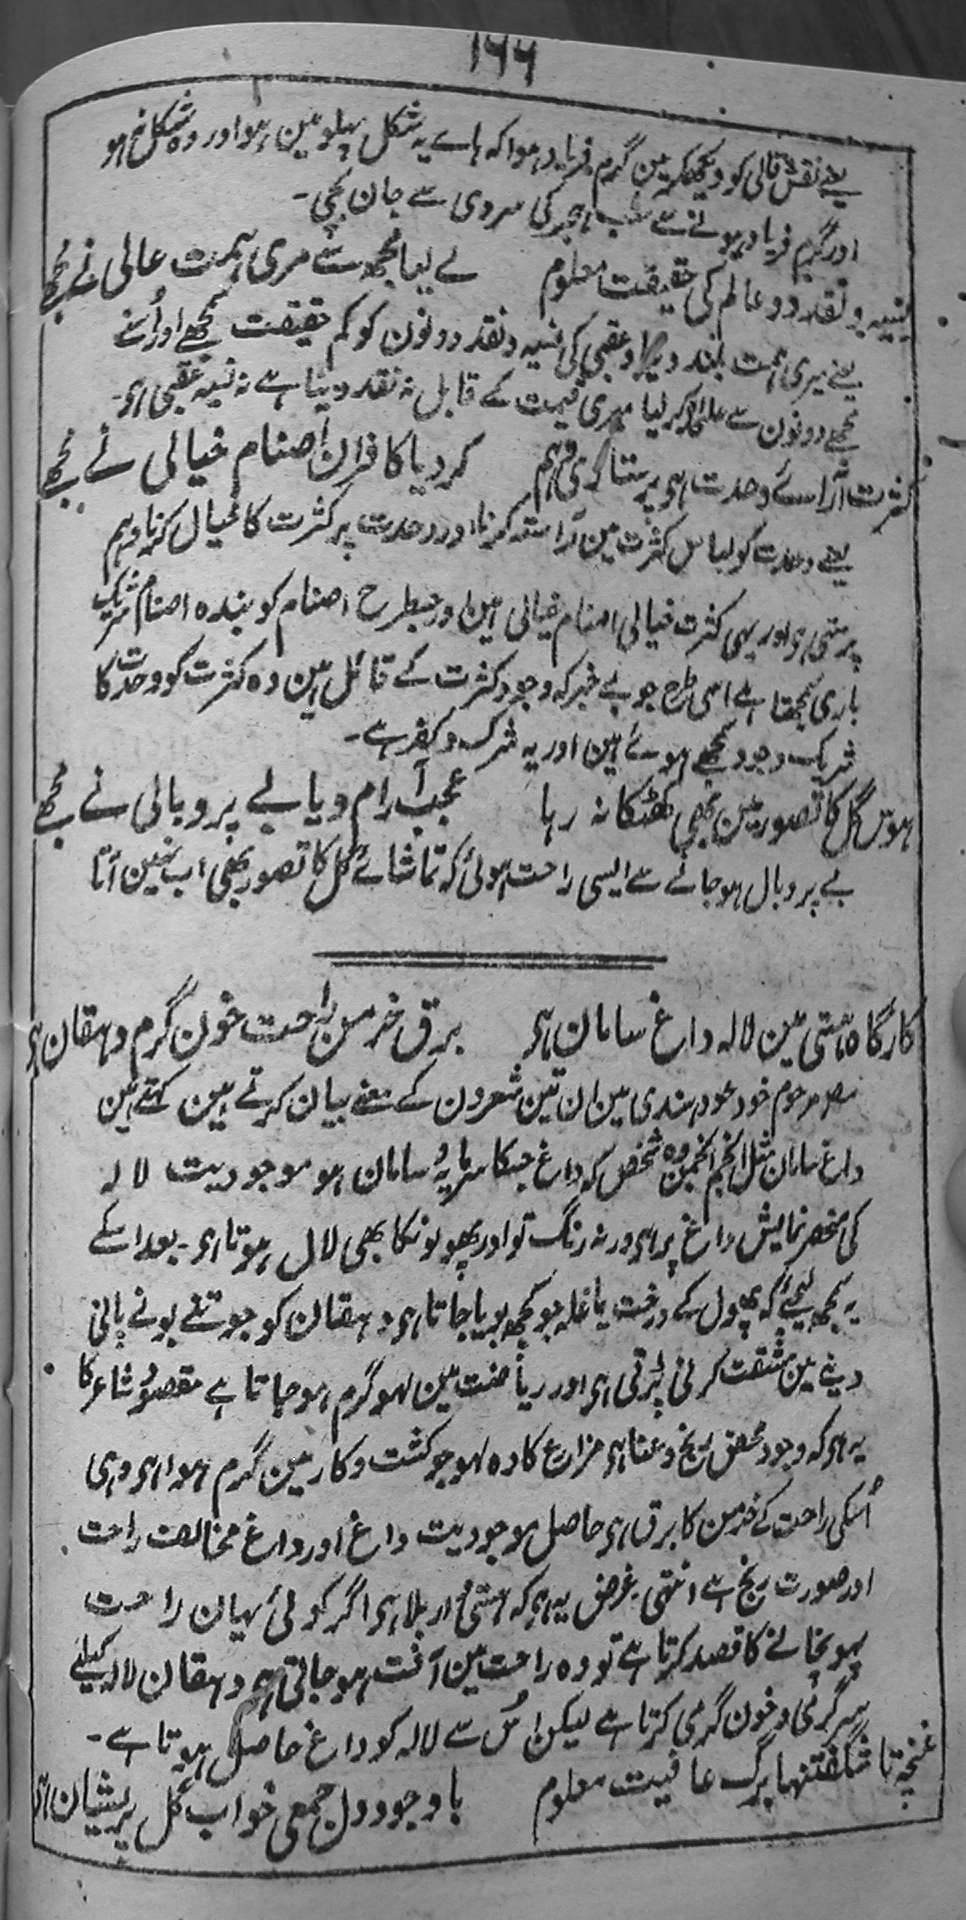 ۱۶۶
یعنے نقش قالی کو دیکھکر مین گرم فریاد ہوا کہ ہاے یہ شکل پہلو مین ہو اور وہ شکل نہ ہو
اور گرم فریاد ہونے سے شب ہجر کی سردی سے جان بچی۔
نسیہ و نقد دو عالم کی حقیقت معلوم لے لیا مجھ سے مری ہمت عالی نے مجھے
یعنے میری ہمت بلند دنیا و عقبی کی نسیہ و نقد دونون کو کم حقیقت سمجھے اور اُسنے
مجھے دونون سے علٰحدہ کر لیا میری قیمت کے قابل نہ نقد دنیا ہے نہ نسیہ عقبی ہی۔
کثرت آرائے وحدت ہی پرستاری وہم کر دیا کافر ان اصنام خیالی نے مجھے
یعنے وحدت کو لباس کثرت مین آراستہ کرنا اور وحدت پر کثرت کا خیال کرنا وہم
پرستی ہی اور یہی کثرت خیالی اصنام خیالی ہین اور جسطرح اصنام کو بندہ اصنام شریک
باری سمجھتا ہے اسی طرح جو بے خبر کہ وجود کثرت کے قائل ہین وہ کثرت کو وحدت کا
شریک وجود سمجھے ہوئے ہین اور یہ شرک و کفر ہے۔
ہوس گل کا تصور مین بھی کھٹکا نہ رہا عجب آرام دیا بے پر و بالی نے مجھے
بے پر و بال ہو جانے سے ایسی راحت ہوئی کہ تماشائے گل کا تصور بھی اب نہین آتا
کارگاہ ہستی مین لالہ داغ سامان ہی برق خرمن راحت خون گرم دہقان ہی
مرحوم خود عود ہندی مین ان تین شعرون کے معنے بیان کرتے ہین کہتے ہین
داغ سامان مثل انجم انجمن وہ شخص کہ داغ جسکا سرمایہ و سامان ہو موجودیت لالہ
کی منحصر نمایش داغ پر ہی ورنہ رنگ تو اور پھولونکا بھی لال ہوتا ہی۔ بعد اسکے
یہ سمجھ لیجئے کہ پھول کے درخت یا غلہ جو کچھ بویا جاتا ہی دہقان کو جوتنے بونے پانی
دینے مین مشقت کرنی پڑتی ہی اور ریاضت مین لہو گرم ہو جاتا ہے مقصود شاعر کا
یہ ہی کہ وجود محض رنج و عنا ہی مزارع کا وہ لہو جو کشت و کار مین گرم ہوا ہی وہی
اُسکی راحت کے خرمن کا برق ہی حاصل موجودیت داغ اور داغ مخالف راحت
اور صورت رنج ہے انتہی غرض یہ ہی کہ ہستی دار بلا ہی اگر کوئی یہان راحت
پہونچانے کا قصد کرتا ہے تو وہ راحت مین آفت ہو جاتی ہے دہقان لالہ کیلئے
سرگرمی و خون گرمی کرتا ہے لیکن اس سے لالہ کو داغ حاصل ہوتا ہے۔
غنچہ تا شگفتنہا برگ عافیت معلوم با وجود دل جمعی خواب گل پریشان ہی